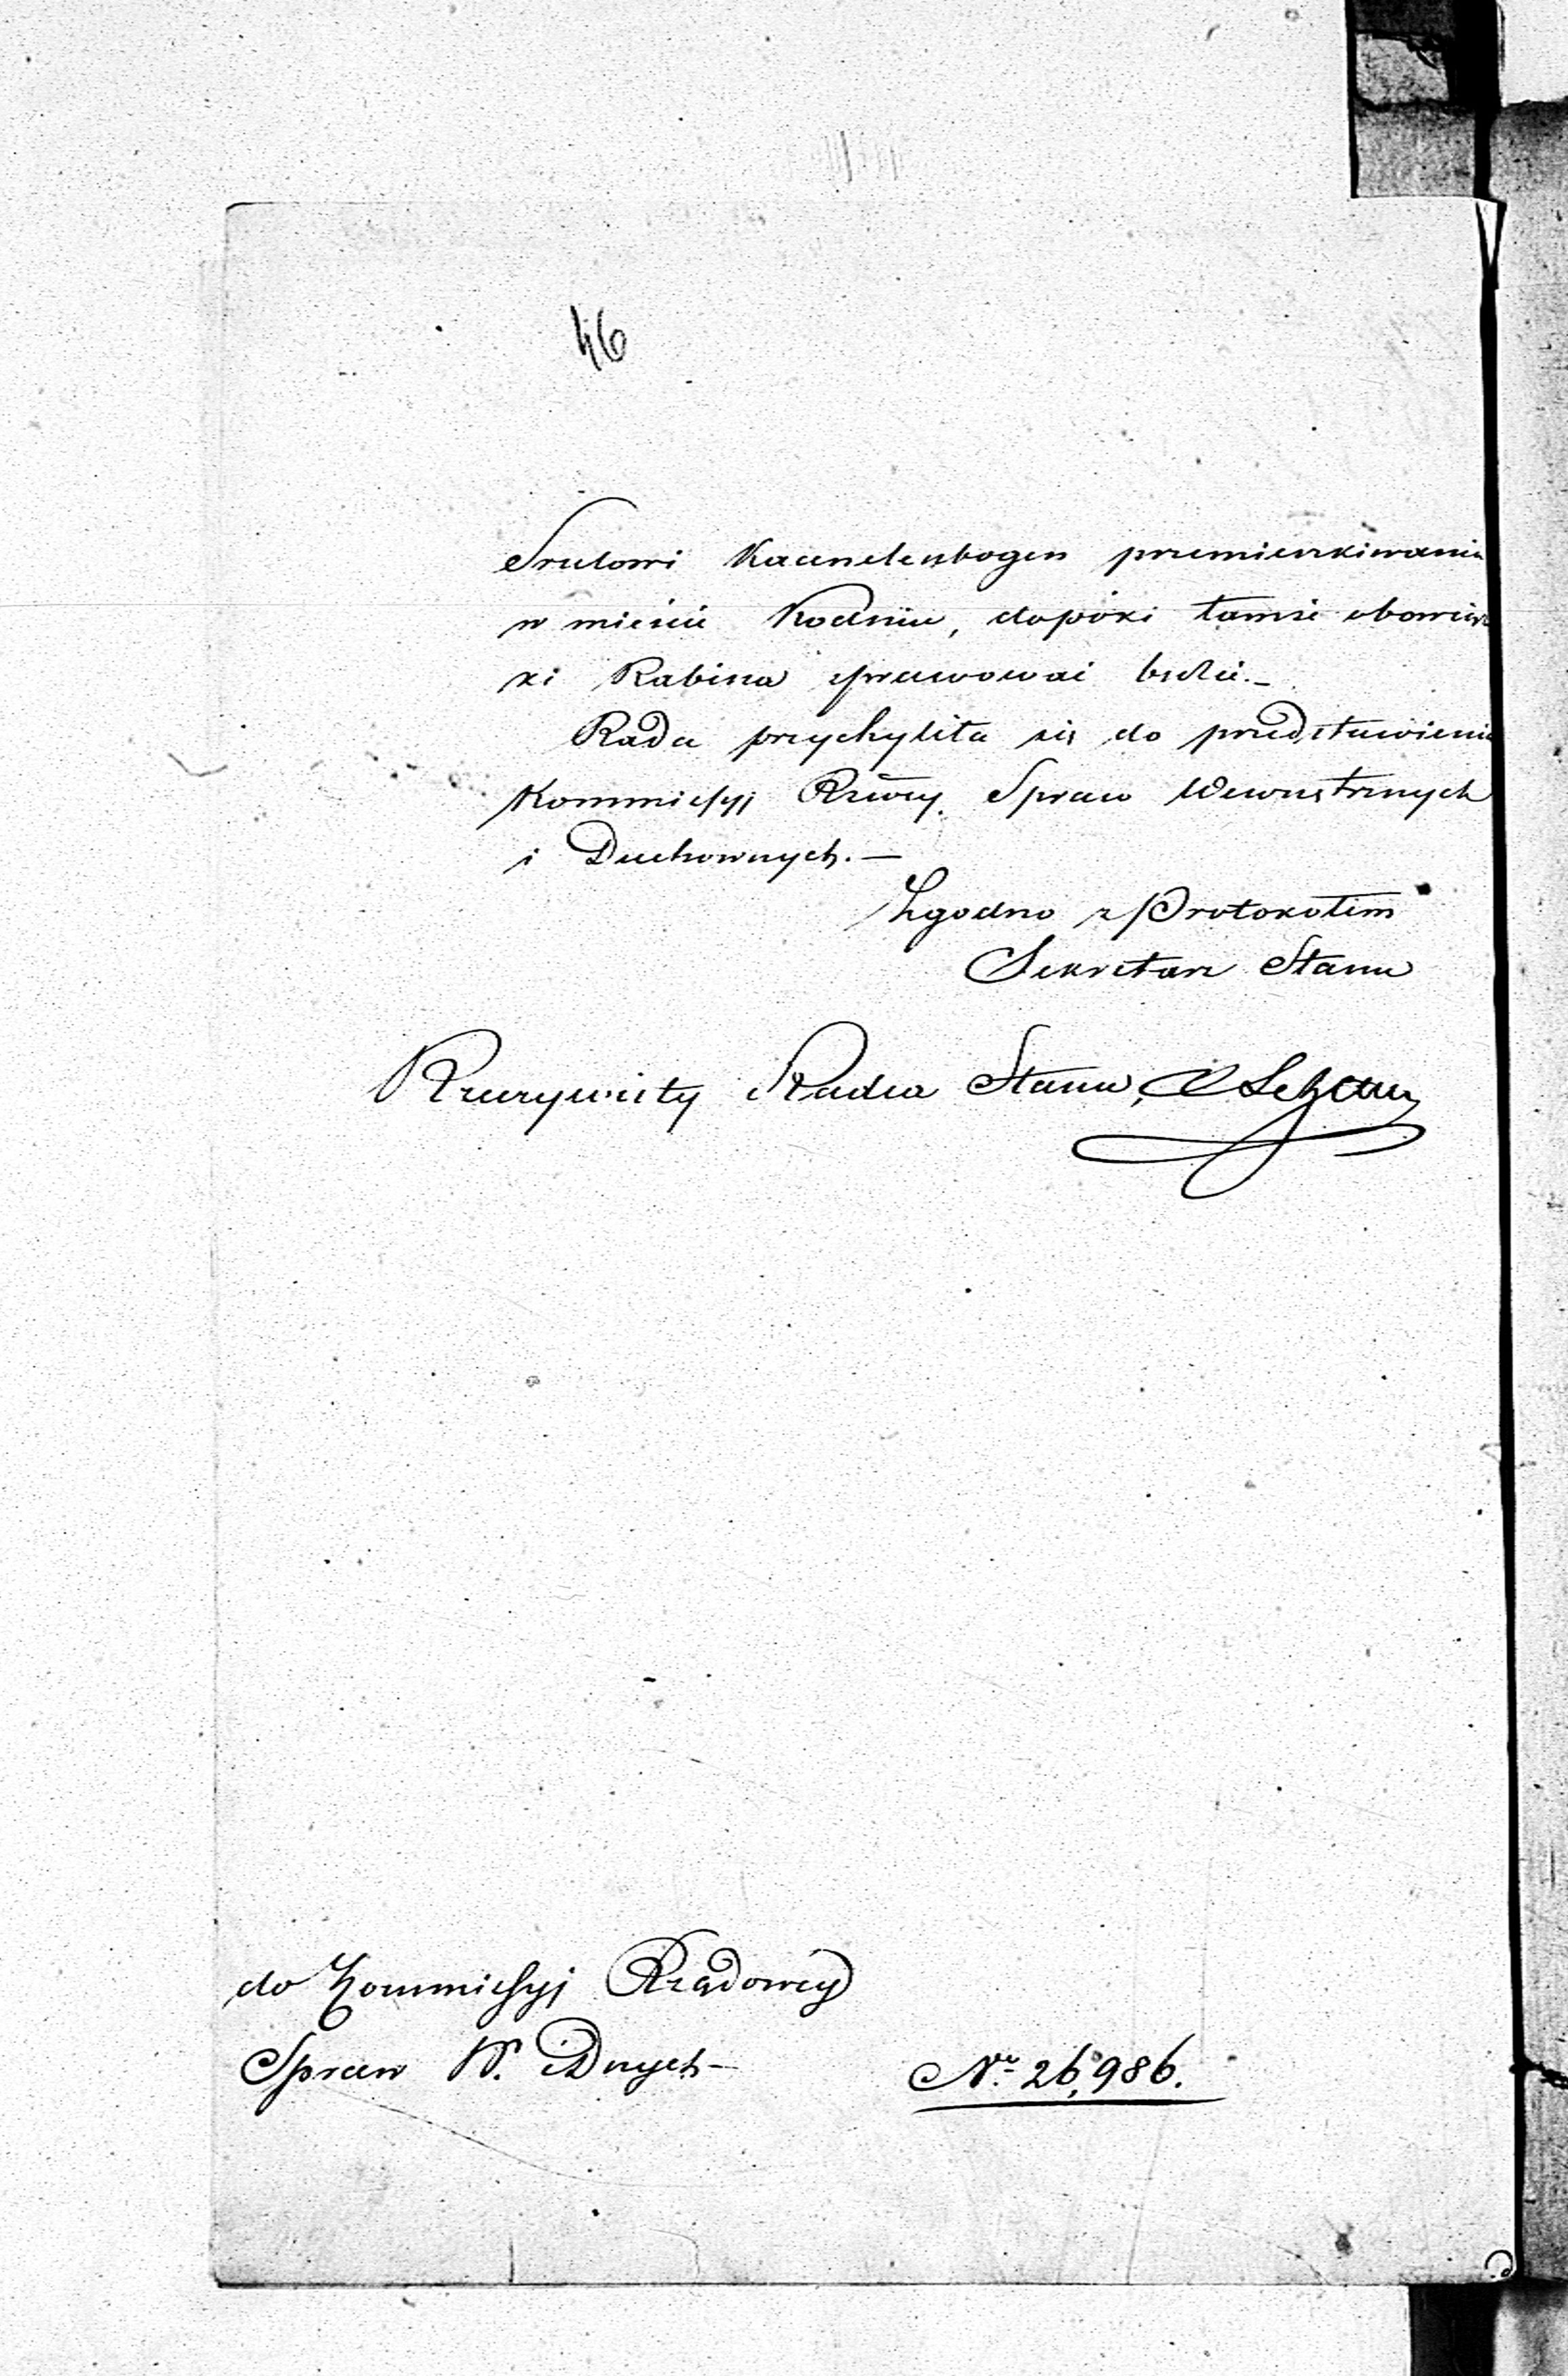 46
Srulowi Kacenelenbogen przemieszkiwania
w mieście Kodniu, dopóki tamże obowiąz
ki Rabina sprawować będzie.–
Rada przychyliła się do przedstawienia
Kommissyj Rzowéy. Spraw Wewnętrznych
i Duchownych.–
Zgodno z Protokołem
Sekretarz Stanu
Rzeczywisty Radca Stanu,
do Kommissyj Rządowéy
Spraw W. i Dnych–
No. 26,986.